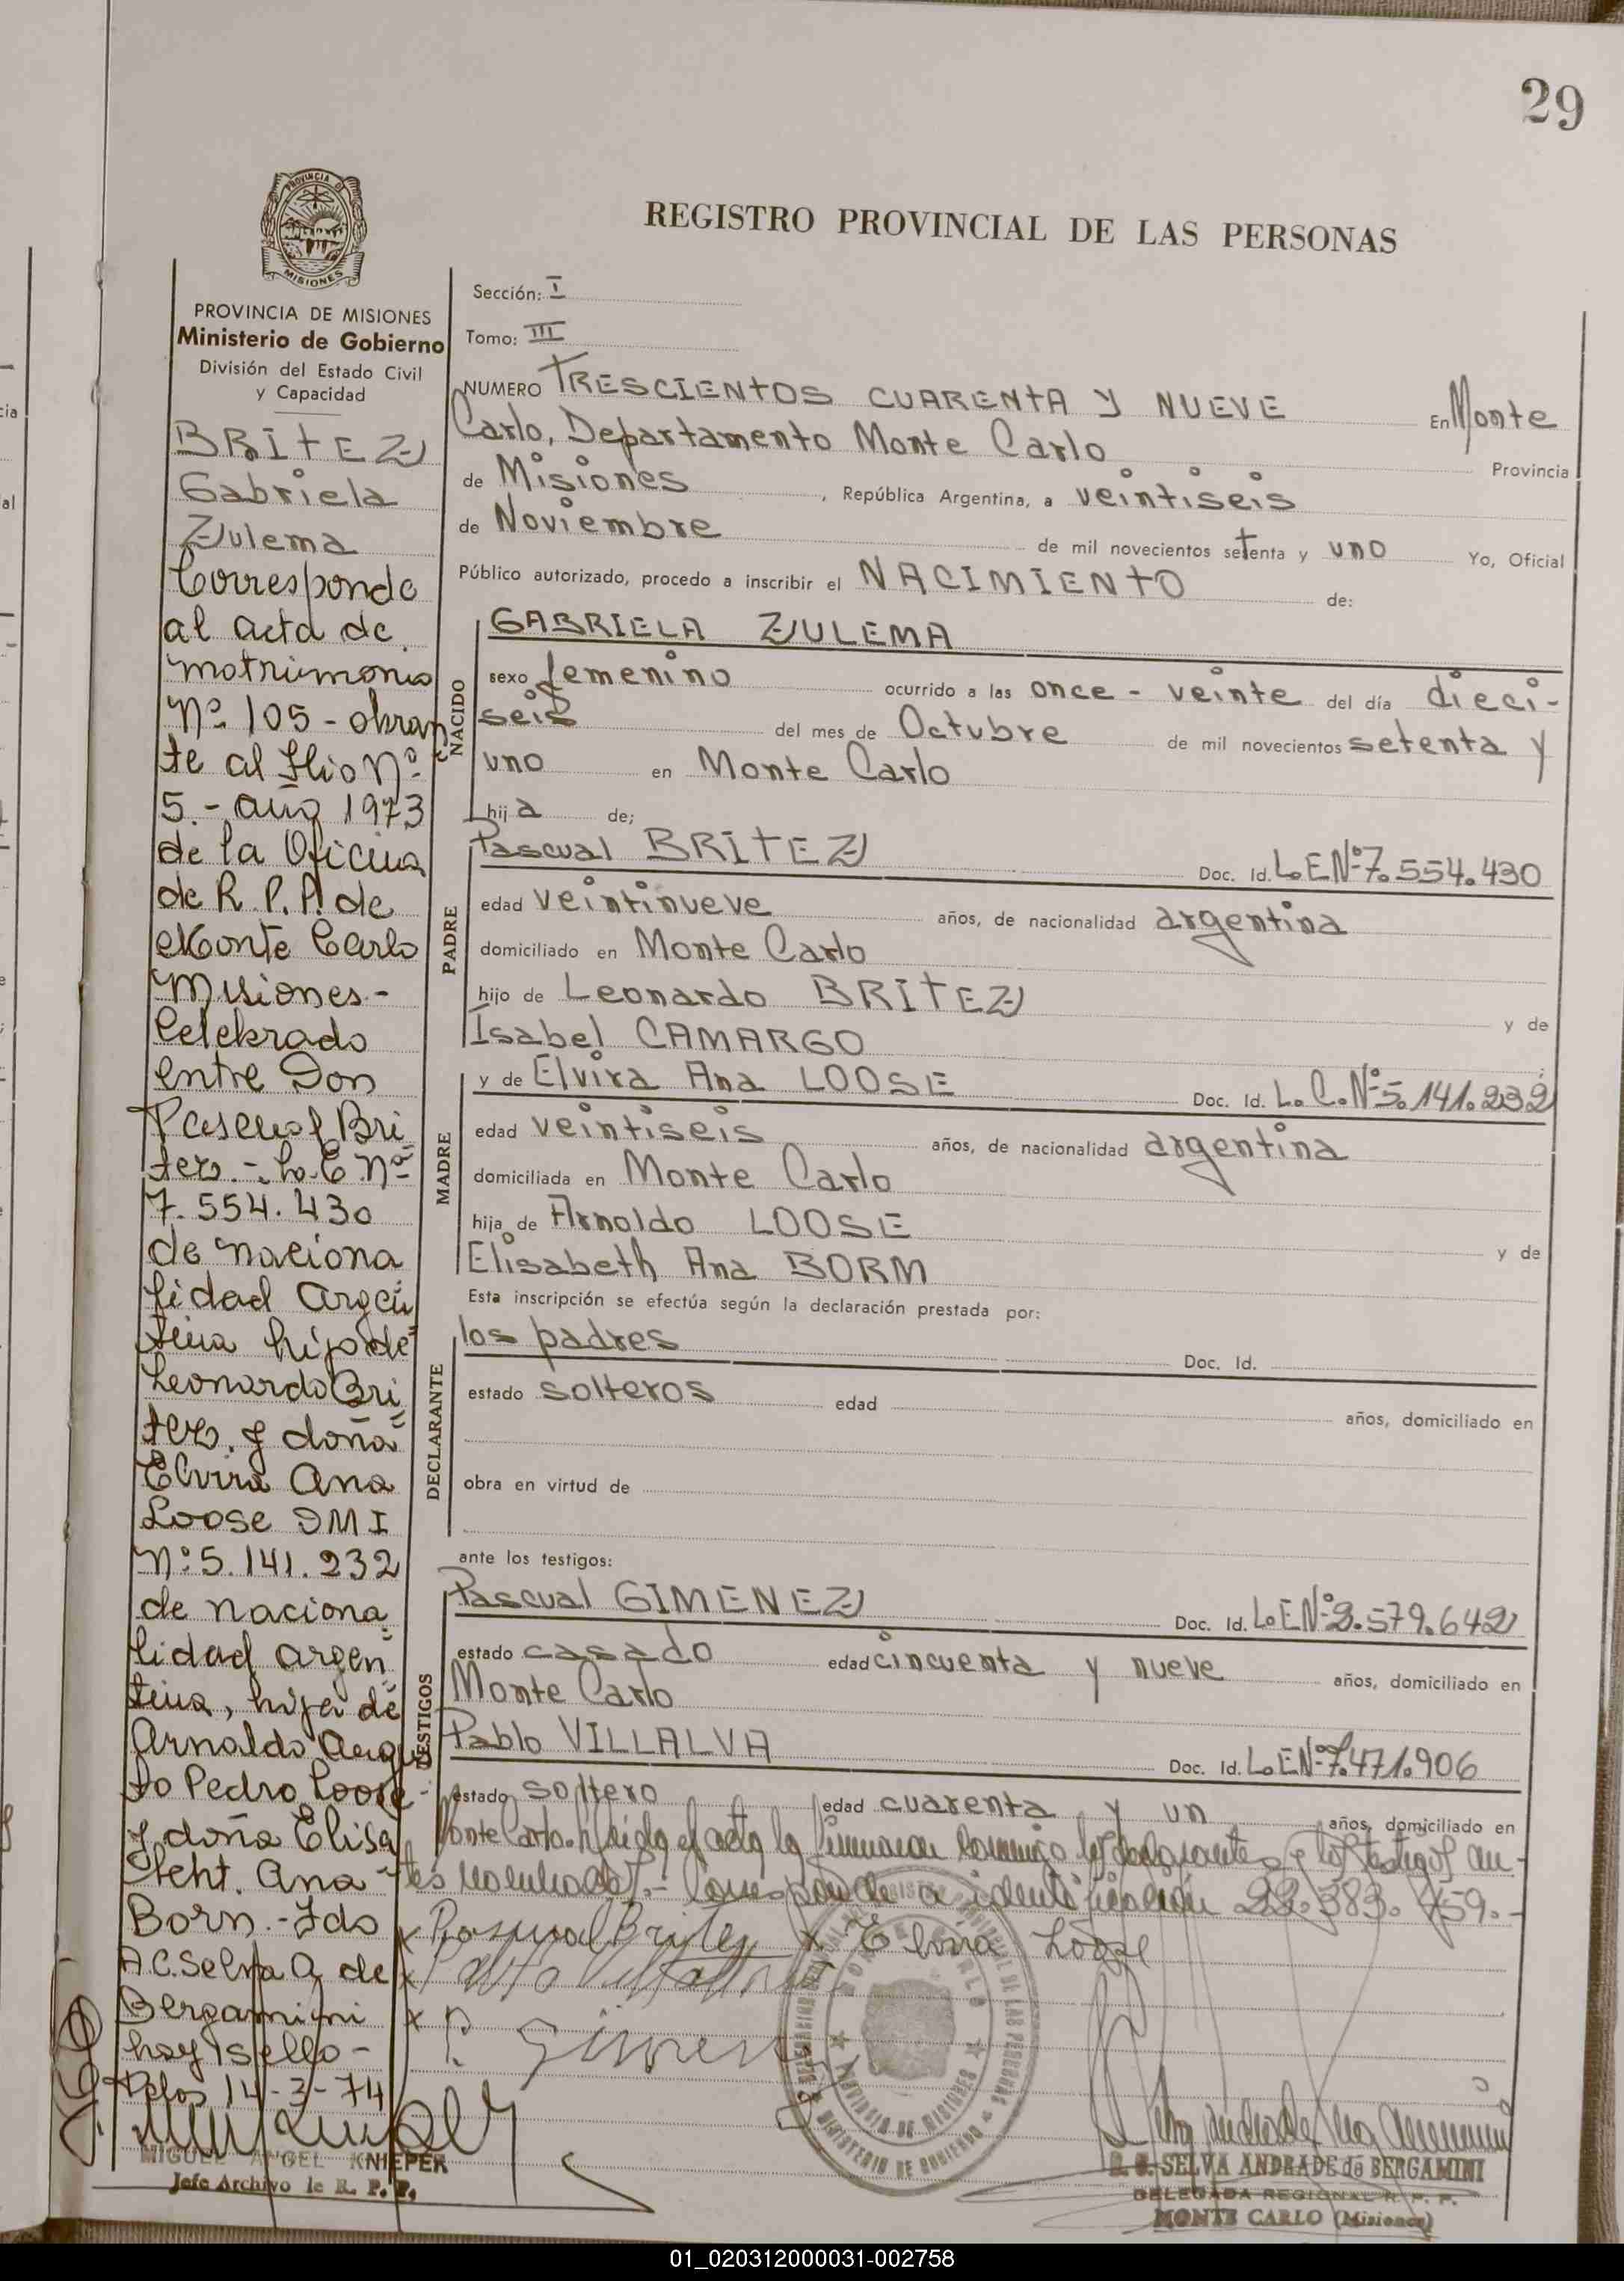 29
PROVINCIA DE
MISIONES
REGISTRO PROVINCIAL DE LAS PERSONAS
PROVINCIA DE MISIONES
Ministerio de Gobierno
División del Estado Civil
y Capacidad
BRITEZ
Gabriela
Zulema
Corresponde
al acta de
matrimonio
Nº 105 - obran
te al folio Nº
5.- año 1973
de la Oficina
de R. P. P. de
Monte Carlo
Misiones.-
Celebrado
entre Don
Pascual Bri
tez.- L.E Nº
7.554.430
de naciona
lidad Argen
tina hijo de
Leonardo Bri
tez. y doña
Elvira Ana
Loose DMI
Nº 5.141.232
de naciona
lidad argen
tina, hija de
Arnaldo Augus
to Pedro Loose
y doña Elisa
beht. Ana
Born.- Fdo
A.C. Selva A. de
Bergamini
hay 1 sello -
Pdas 14-3-74
MIGUEL ANGEL KNIEPER
Jefe Archivo de R. P. P.
Sección: I
Tomo: III
NUMERO TRESCIENTOS CUARENTA Y NUEVE En Monte
Carlo, Departamento Monte Carlo Provincia
de Misiones, República Argentina, a veintiseis
de Noviembre de mil novecientos setenta y uno Yo, Oficial
Público autorizado, procedo a inscribir el NACIMIENTO de:
NACIDO
GABRIELA ZULEMA
sexo femenino ocurrido a las once - veinte del día dieci-
seis del mes de Octubre de mil novecientos setenta y
uno en Monte Carlo
hija de;
PADRE
Pascual BRITEZ Doc. Id. L.E Nº 7.554.430
edad veintinueve años, de nacionalidad argentina
domiciliado en Monte Carlo
hijo de Leonardo BRITEZ y de
Isabel CAMARGO
MADRE
y de Elvira Ana LOOSE Doc. Id. L.C. Nº 5.141.232
edad veintiseis años, de nacionalidad argentina
domiciliada en Monte Carlo
hija de Arnoldo LOOSE y de
Elisabeth Ana BORM
Esta inscripción se efectúa según la declaración prestada por:
DECLARANTE
los padres Doc. Id.
estado solteros edad años, domiciliado en
obra en virtud de
ante los testigos:
TESTIGOS
Pascual GIMENEZ Doc. Id. L.E Nº 2.579.642
estado casado edad cincuenta y nueve años, domiciliado en
Monte Carlo
Pablo VILLALVA Doc. Id. L.E Nº 7.471.906
estado soltero edad cuarenta y un años, domiciliado en
Monte Carlo. leida el acta la firmaron conmigo los declarantes y los testigos an-
tes nombrados.- Corresponde a identificación 22.383.459.-
x Pascual Britez x Elvira Loose
x Pablo Villalva
x P. Gimenez
REGISTRO PROVINCIAL DE LAS PERSONAS
MONTE CARLO
PROVINCIA DE MISIONES
MINISTERIO DE GOBIERNO
SELVA ANDRADE de BERGAMINI
DELEGADA REGIONAL R. P. P.
MONTE CARLO (Misiones)
01_020312000031-002758